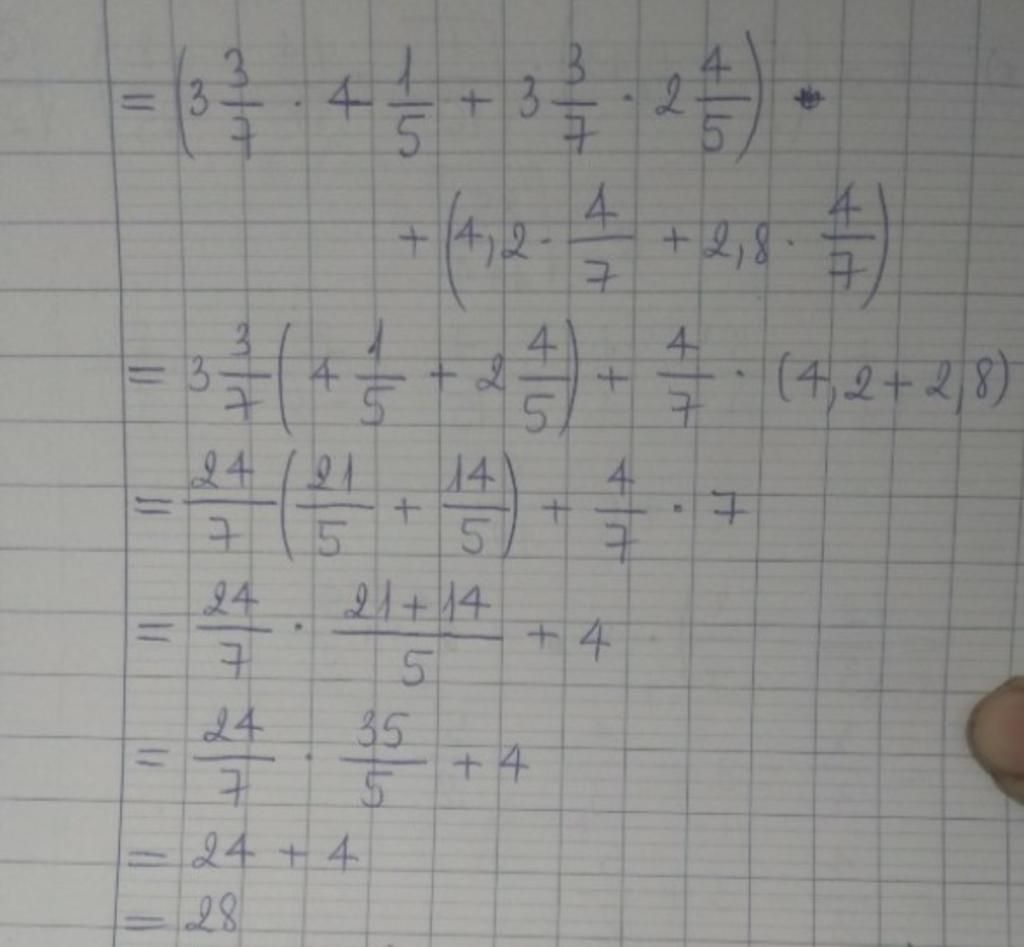 = (3 3/7 · 4 1/5 + 3 3/7 · 2 4/5)
+ (4,2 · 4/7 + 2,8 · 4/7)
= 3 3/7 (4 1/5 + 2 4/5) + 4/7 · (4,2 + 2,8)
= 24/7 (21/5 + 14/5) + 4/7 · 7
= 24/7 · (21 + 14)/5 + 4
= 24/7 · 35/5 + 4
= 24 + 4
= 28